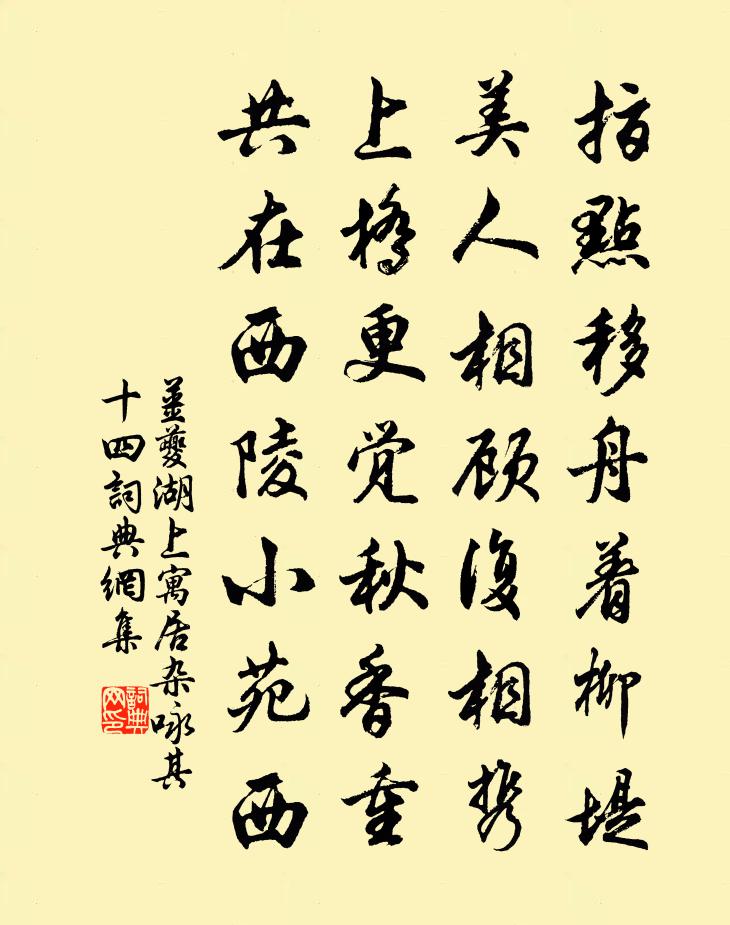 指點移舟着柳堤
美人相顾復相携
上橋更觉秋香重
共在西陵小苑西
薑夔湖上寓居杂咏其
十四詞典網集
詞典网印